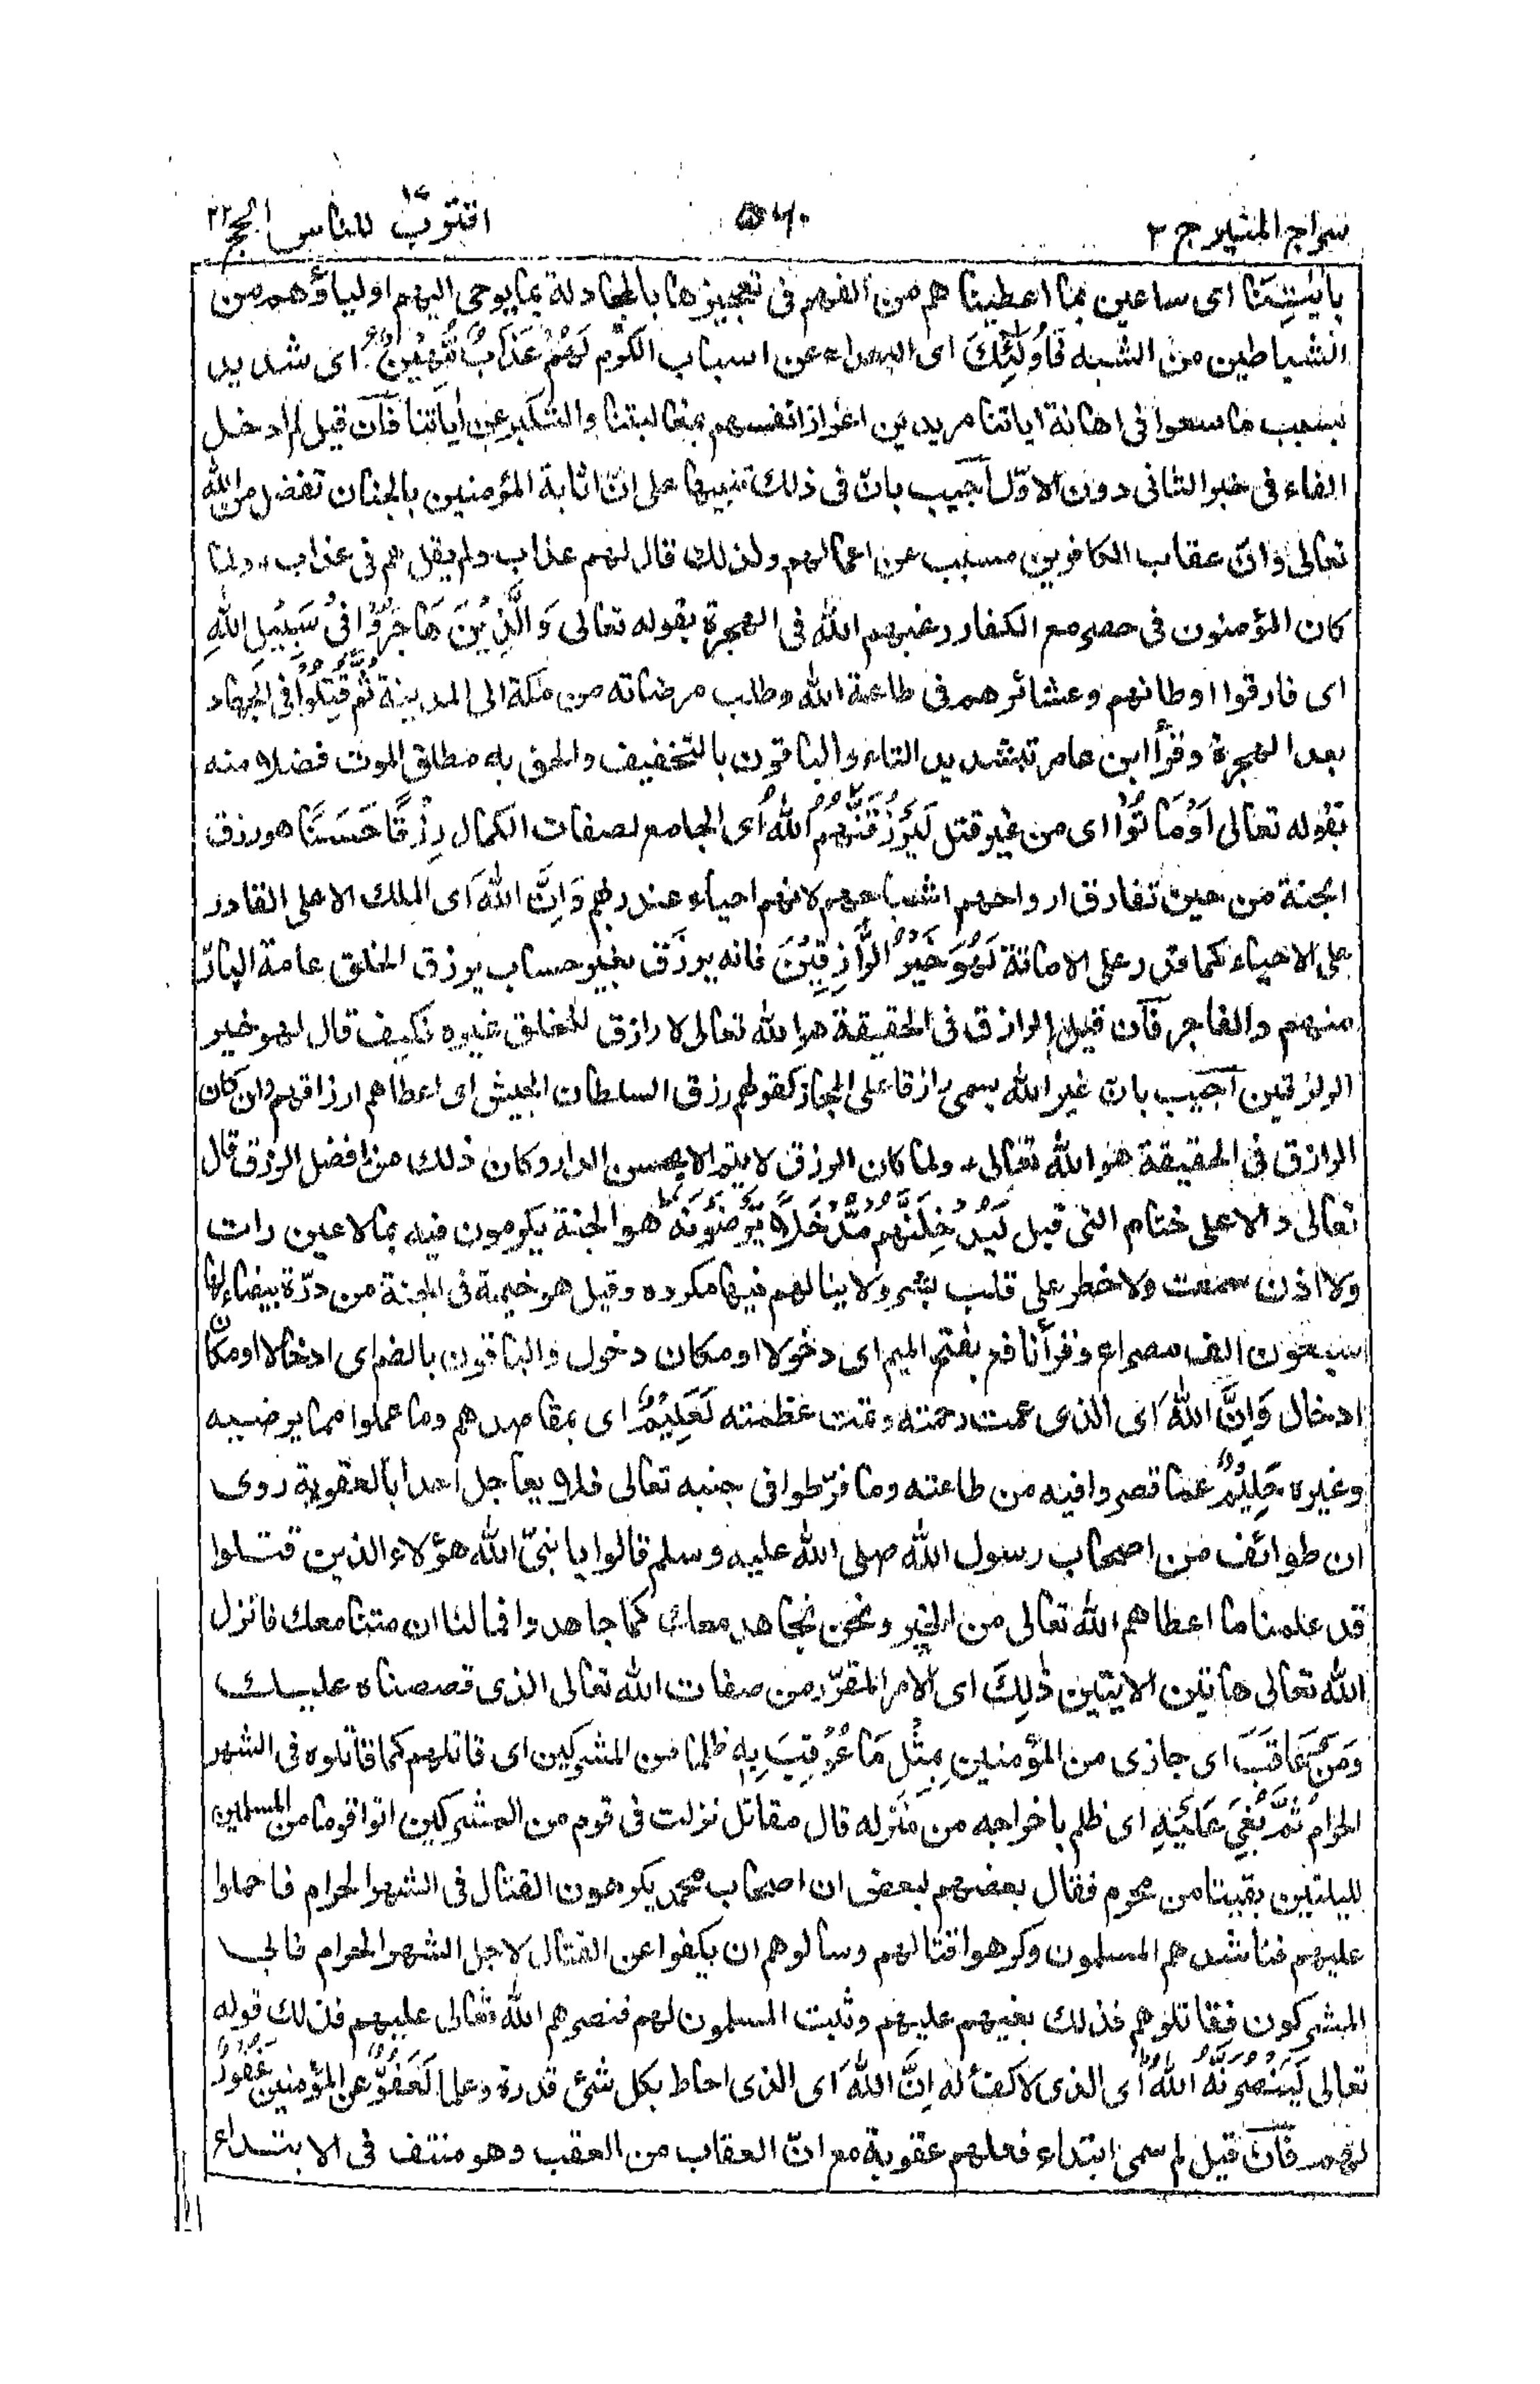 سراج المنير ج ٣
٥٦٠
اقترب للناس ١٧ الحج ٢٢
بِاٰيٰتِنَا اى ساعين بما اعطينا هم من الفهم فى تعجيزها بالمجادلة بما يوحى اليهم اولياؤهم من
الشياطين من الشبه فَاُولٰٓئِكَ اى البعداء عن اسباب الكرم لَهُمْ عَذَابٌ مُّهِيْنٌ اى شديد
بسبب ما سعوا فى اهانة اياتنا مريدين اعزاز انفسهم بمغالبتنا والتكبر عن اياتنا فآن قيل لم ادخل
الفاء فى خبر الثانى دون الاوّل اجيب بانّ فى ذلك تنبيها على انّ اثابة المؤمنين بالجنان تفضل من الله
تعالى وانّ عقاب الكافرين مسبب عن اعمالهم ولذلك قال لهم عذاب ولم يقل هم فى عذاب، ولما
كان المؤمنون فى حصر مع الكفار رغبهم الله فى الهجرة بقوله تعالى وَالَّذِيْنَ هَاجَرُوْا فِيْ سَبِيْلِ اللّٰهِ
اى فارقوا اوطانهم وعشائرهم فى طاعة الله وطلب مرضاته من مكة الى المدينة ثُمَّ قُتِلُوْٓا فى الجهاد
بعد الهجرة وقرأ ابن عامر بتشديد التاء والباقون بالتخفيف والحق به مطلق الموت فضلا منه
بقوله تعالى اَوْ مَاتُوْا اى من غير قتل لَيَرْزُقَنَّهُمُ اللّٰهُ اى الجامع لصفات الكمال رِزْقًا حَسَنًا هو رزق
الجنة من حين تفارق ارواحهم اشباحهم لانهم احياء عند ربهم وَاِنَّ اللّٰهَ اى الملك الاعلى القادر
على الاحياء كما قدر على الاماتة لَهُوَ خَيْرُ الرَّازِقِيْنَ فانه يرزق بغير حساب يرزق الخلق عامة البارّ
منهم والفاجر فآن قيل الرازق فى الحقيقة هو الله تعالى لا رازق للخلق غيره فكيف قال لهو خير
الرازقين اجيب بانّ غير الله يسمى رازقا على المجاز كقولهم رزق السلطان الجيش اى اعطاهم ارزاقهم وان كان
الرازق فى الحقيقة هو الله تعالى، ولما كان الرزق لا يتم الا بحسن الدار وكان ذلك من افضل الرزق قال
تعالى دالا على ختام التى قبل لَيُدْخِلَنَّهُمْ مُّدْخَلًا يَّرْضَوْنَهٗ هو الجنة يكرمون فيه بما لا عين رات
ولا اذن سمعت ولا خطر على قلب بشر ولا ينالهم فيها مكروه وقيل هو خيمة فى الجنة من درّة بيضاء لها
سبعون الف مصراع وقرأ نافع بفتح الميم اى دخولا او مكان دخول والباقون بالضم اى ادخالا او مكان
ادخال وَاِنَّ اللّٰهَ اى الذى عمت رحمته وتمت عظمته لَعَلِيْمٌ اى بمقاصدهم وما عملوا مما يرضيه
وغيره حَلِيْمٌ عما قصروا فيه من طاعته وما فرّطوا فى جنبه تعالى فلا يعاجل احدا بالعقوبة روى
ان طوائف من اصحاب رسول الله صلى الله عليه وسلم قالوا يا نبىّ الله هؤلاء الذين قتلوا
قد علمنا ما اعطاهم الله تعالى من الخير ونحن نجاهد معك كما جاهدوا فما لنا ان متنا معك فانزل
الله تعالى هاتين الايتين ذٰلِكَ اى الامر المقرّر من صفات الله تعالى الذى قصصناه عليك
وَمَنْ عَاقَبَ اى جازى من المؤمنين بِمِثْلِ مَا عُوْقِبَ بِهٖ ظلما من المشركين اى قاتلهم كما قاتلوه فى الشهر
الحرام ثُمَّ بُغِيَ عَلَيْهِ اى ظلم باخراجه من منزله قال مقاتل نزلت فى قوم من المشركين اتوا قوما من المسلمين
لليلتين بقيتا من محرم فقال بعضهم لبعض ان اصحاب محمد يكرهون القتال فى الشهر الحرام فاحملوا
عليهم فناشدهم المسلمون وكرهوا قتالهم وسالوهم ان يكفوا عن القتال لاجل الشهر الحرام فابى
المشركون فقاتلوهم فذلك بغيهم عليهم وثبت المسلمون لهم فنصرهم الله تعالى عليهم فذلك قوله
تعالى لَيَنْصُرَنَّهُ اللّٰهُ اى الذى لا كفأ له اِنَّ اللّٰهَ اى الذى احاط بكل شئ قدرة وعلما لَعَفُوٌّ عن المؤمنين غَفُوْرٌ
لهم فآن قيل لم سمى ابتداء فعلهم عقوبة مع انّ العقاب من العقب وهو منتف فى الابتداء